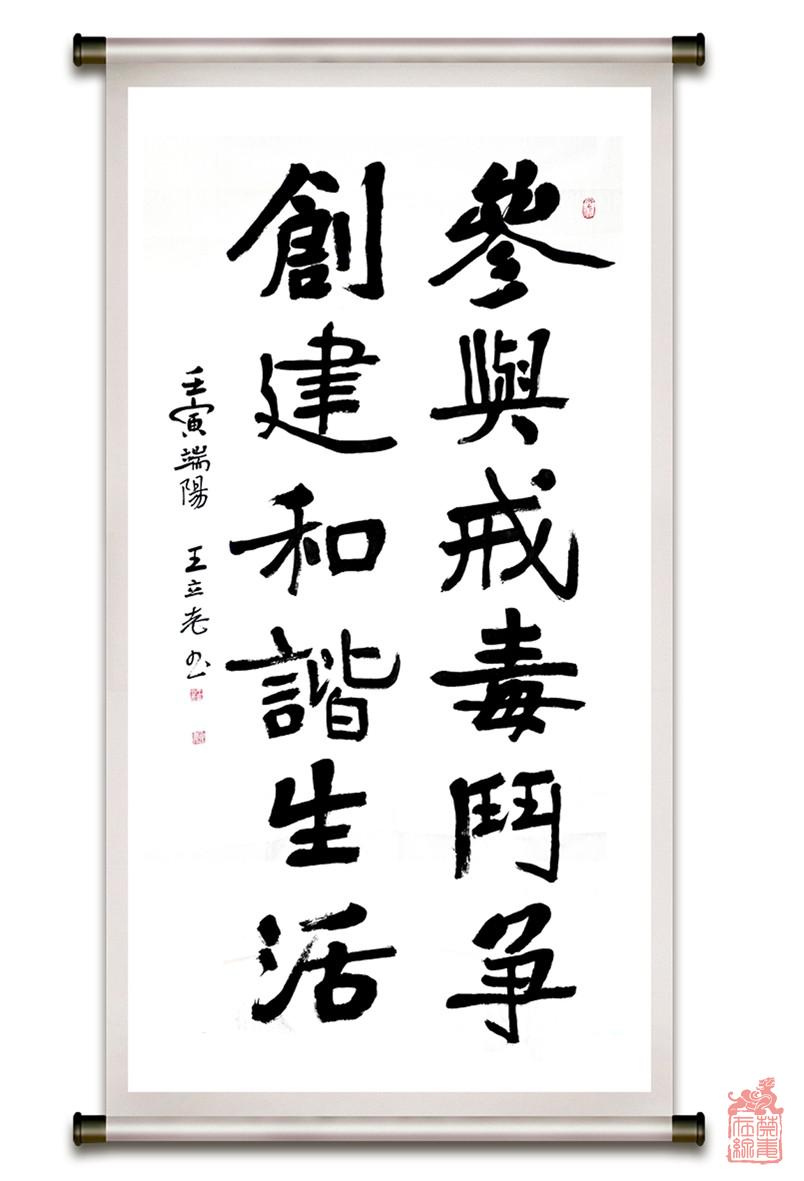 參與戒毒鬥爭
創建和諧生活
壬寅端陽 王立志书